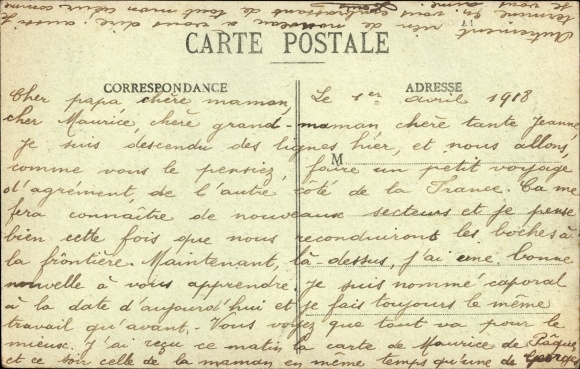 Autrement rien de nouveau à vous dire. Je
termine en vous embrassant de tout mon cœur comme
je vous aime.
CARTE POSTALE
CORRESPONDANCE
ADRESSE
M
Le 1er avril 1918
Cher papa, chère maman,
cher Maurice, chère grand-maman chère tante Jeanne,
Je suis descendu des lignes hier, et nous allons,
comme vous le pensiez, faire un petit voyage
d'agrément, de l'autre côté de la France. Ça me
fera connaître de nouveaux secteurs et je pense
bien cette fois que nous reconduiront les boches à
la frontière. Maintenant, là-dessus, j'ai une bonne
nouvelle à vous apprendre. Je suis nommé caporal
à la date d'aujourd'hui et je fais toujours le même
travail qu'avant. Vous voyez que tout va pour le
mieux. J'ai reçu ce matin la carte de Maurice de Pâques
et ce soir celle de la maman en même temps qu'une de Georges